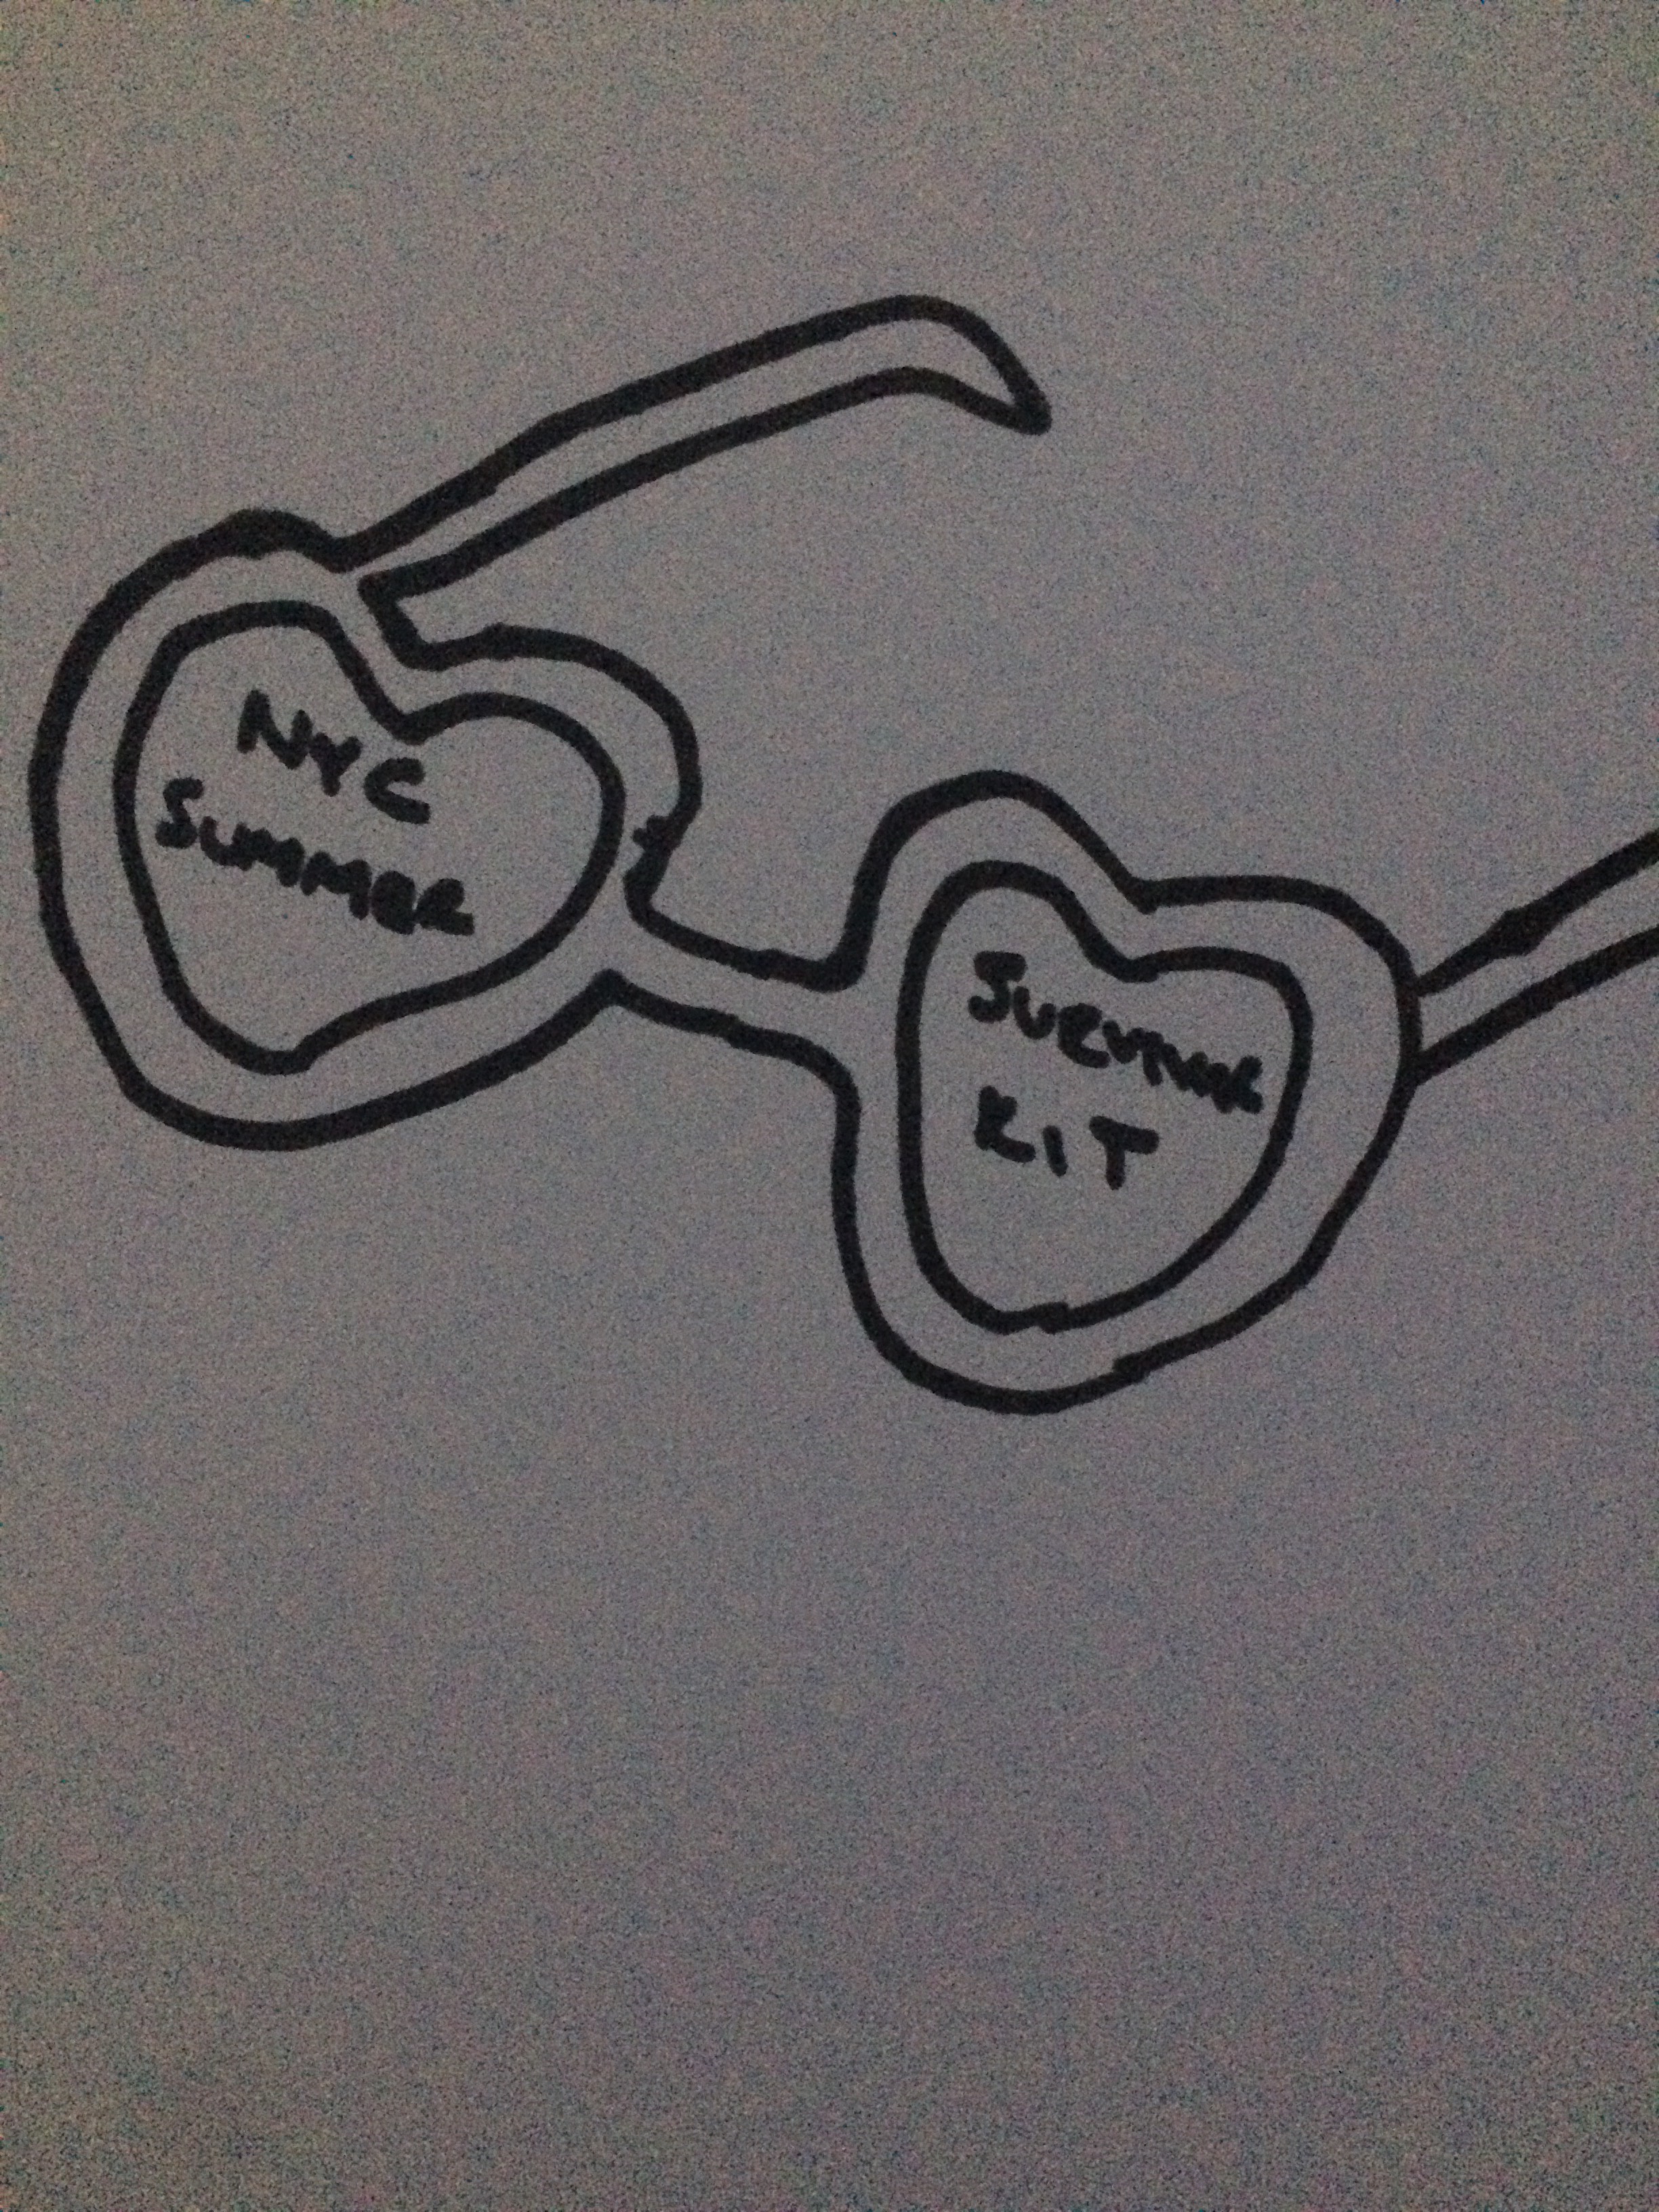 NYC
SUMMER
SURVIVAL
KIT